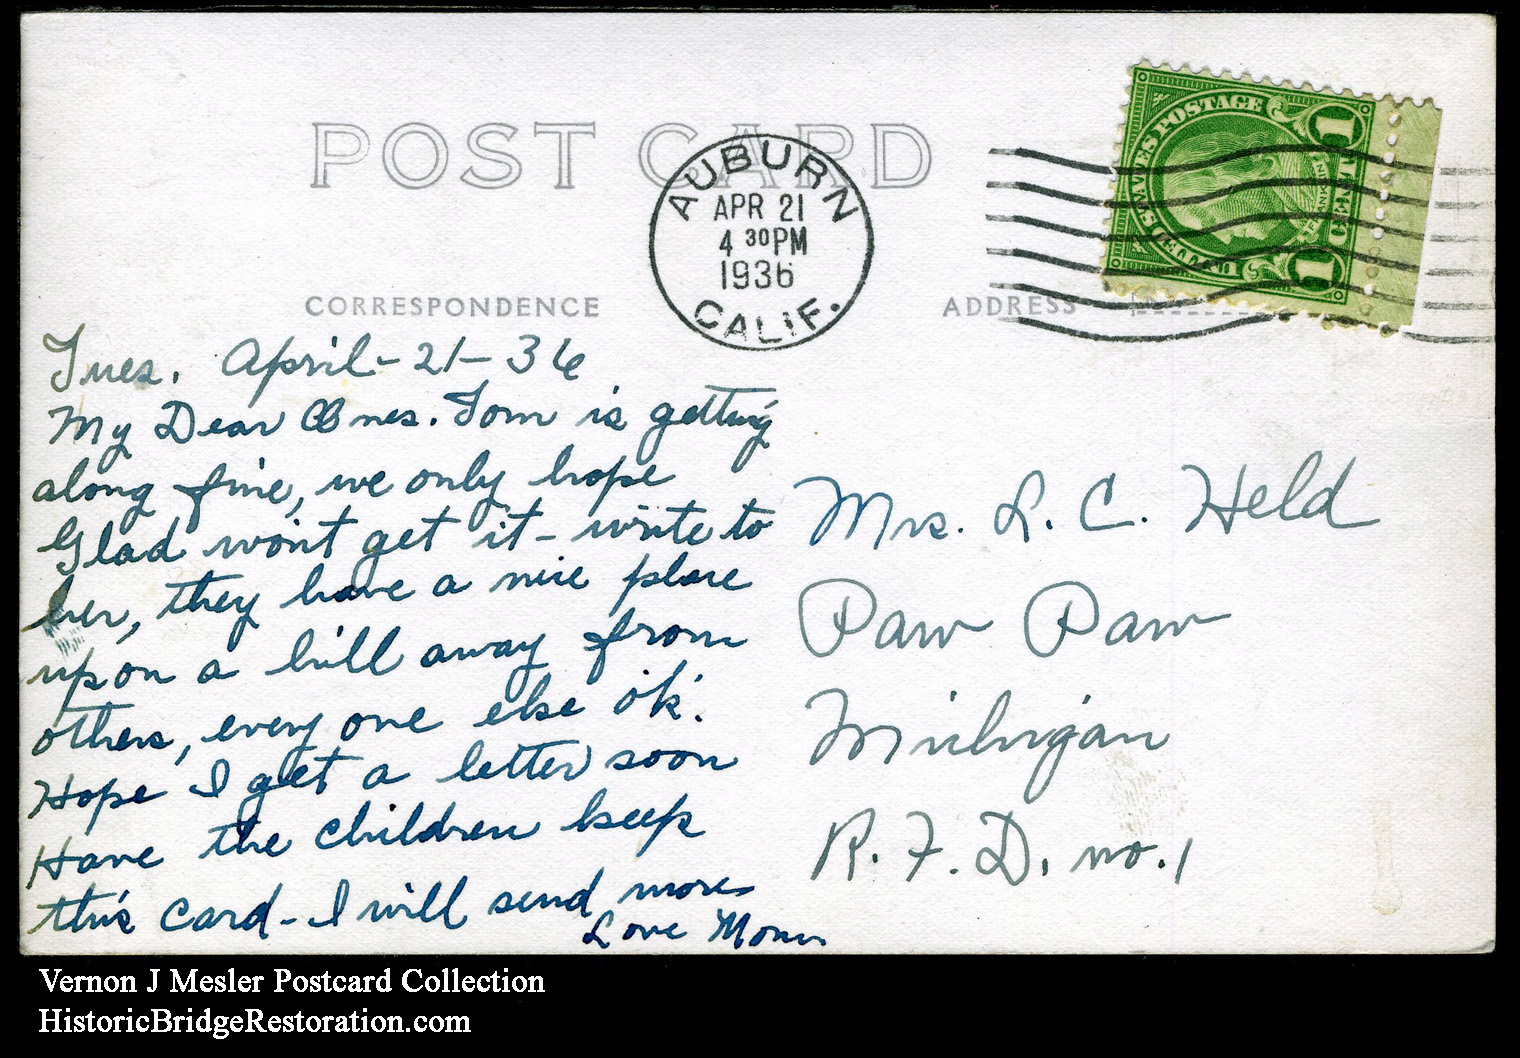 POST CARD
AUBURN
APR 21
4 30 PM
1936
CALIF.
UNITED STATES POSTAGE
1 CENT 1
FRANKLIN
CORRESPONDENCE
ADDRESS
Tues. April-21-36
My Dear Ones. Tom is getting
along fine, we only hope
Glad won't get it - write to
her, they have a nice place
upon a hill away from
others, every one else ok.
Hope I get a letter soon
Have the children keep
this card - I will send more
Love Mom
Mrs. L. C. Held
Paw Paw
Michigan
R. F. D. no. 1
Vernon J Mesler Postcard Collection
HistoricBridgeRestoration.com